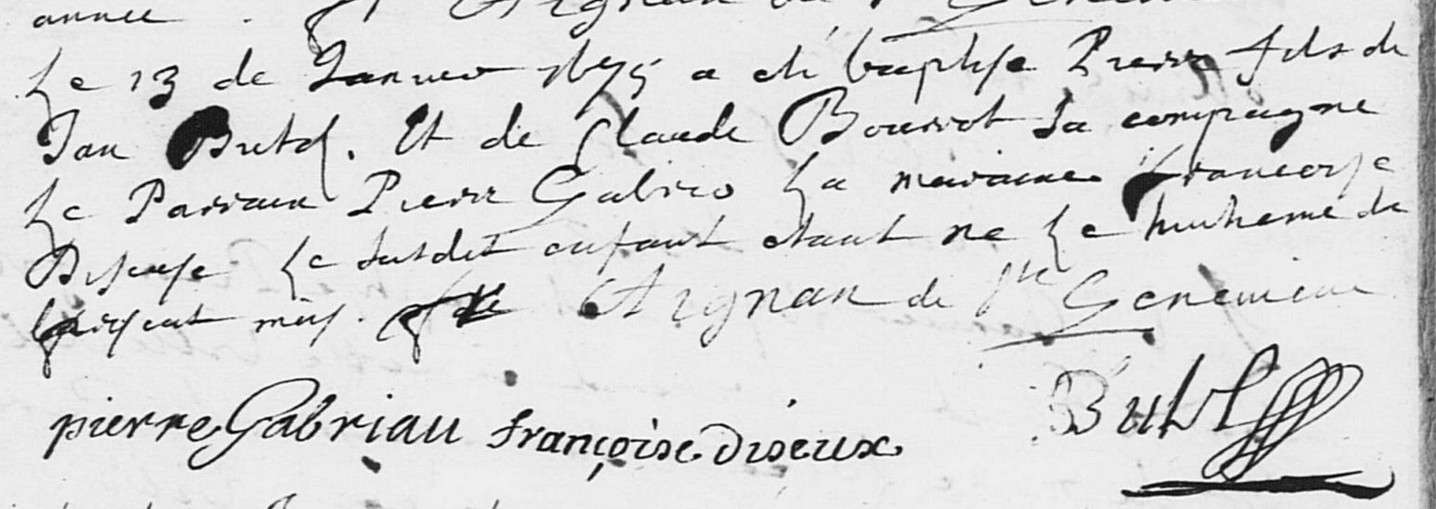 annee. fr Aignan de Ste Genevieve
Le 13 de Janvier 1675 a eté baptise Pierre fils de
Jan Butel. Et de Claude Bourrot sa compagne
Le Parrain Pierre Gabrio La maraine Francoise
Diseuse Le susdit enfant etant ne Le huitieme de
present mois. fr Aignan de Ste Genevieve
pierre Gabriau françoise diseux
Butel